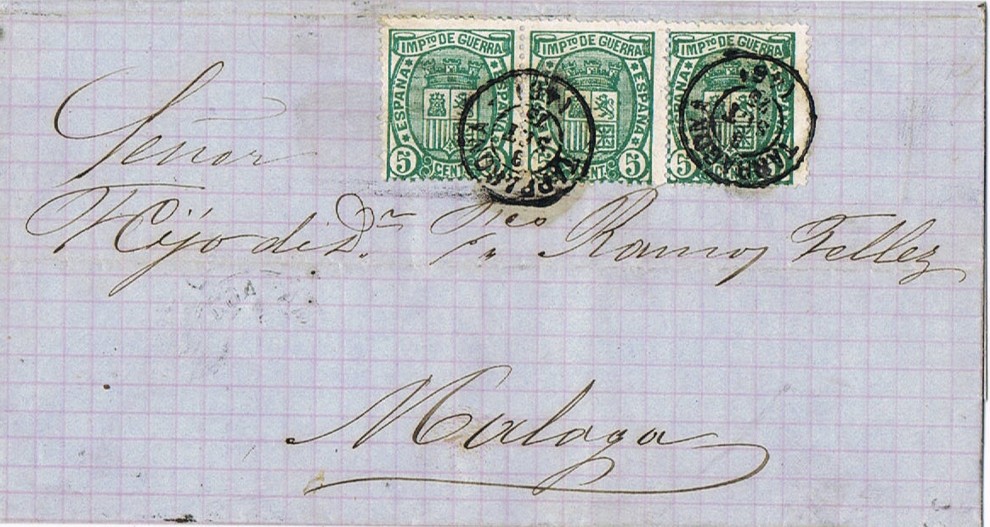 IMPTO DE GUERRA IMPTO DE GUERRA IMPTO DE GUERRA
ESPAÑA ESPAÑA ESPAÑA ESPAÑA ESPAÑA
5 CENT. 5 5 CENT. 5 5 CENT. 5
TARRAGONA
TARRAGONA
Señor
Hijo de Dn Fco Ramos Tellez
Malaga